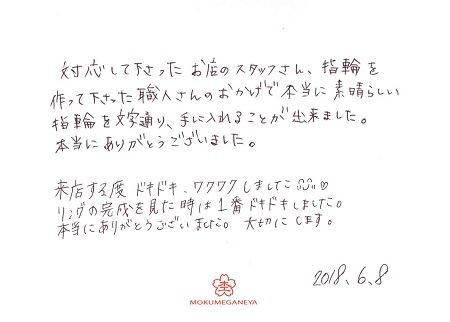 対応して下さったお店のスタッフさん、指輪を
作って下さった職人さんのおかげで本当に素晴らしい
指輪を文字通り、手に入れることが出来ました。
本当にありがとうございました。
来店する度ドキドキ、ワクワクしました♡
リングの完成を見た時は1番ドキドキしました。
本当にありがとうございました。大切にします。
2018.6.8
MOKUMEGANEYA